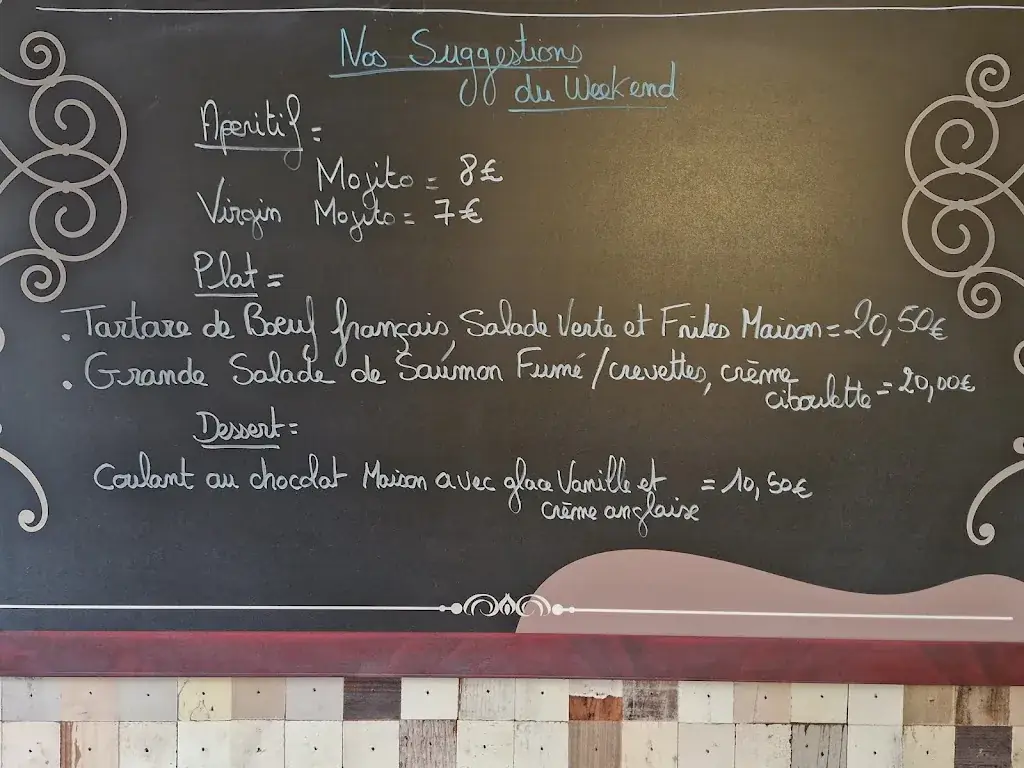 Nos Suggestions
du Weekend
Aperitif =
Mojito = 8€
Virgin Mojito = 7€
Plat =
. Tartare de Bœuf français, Salade Verte et Frites Maison = 20,50€
. Grande Salade de Saumon Fumé / crevettes, crème
ciboulette = 20,00€
Dessert =
Coulant au chocolat Maison avec glace Vanille et = 10,50€
crème anglaise